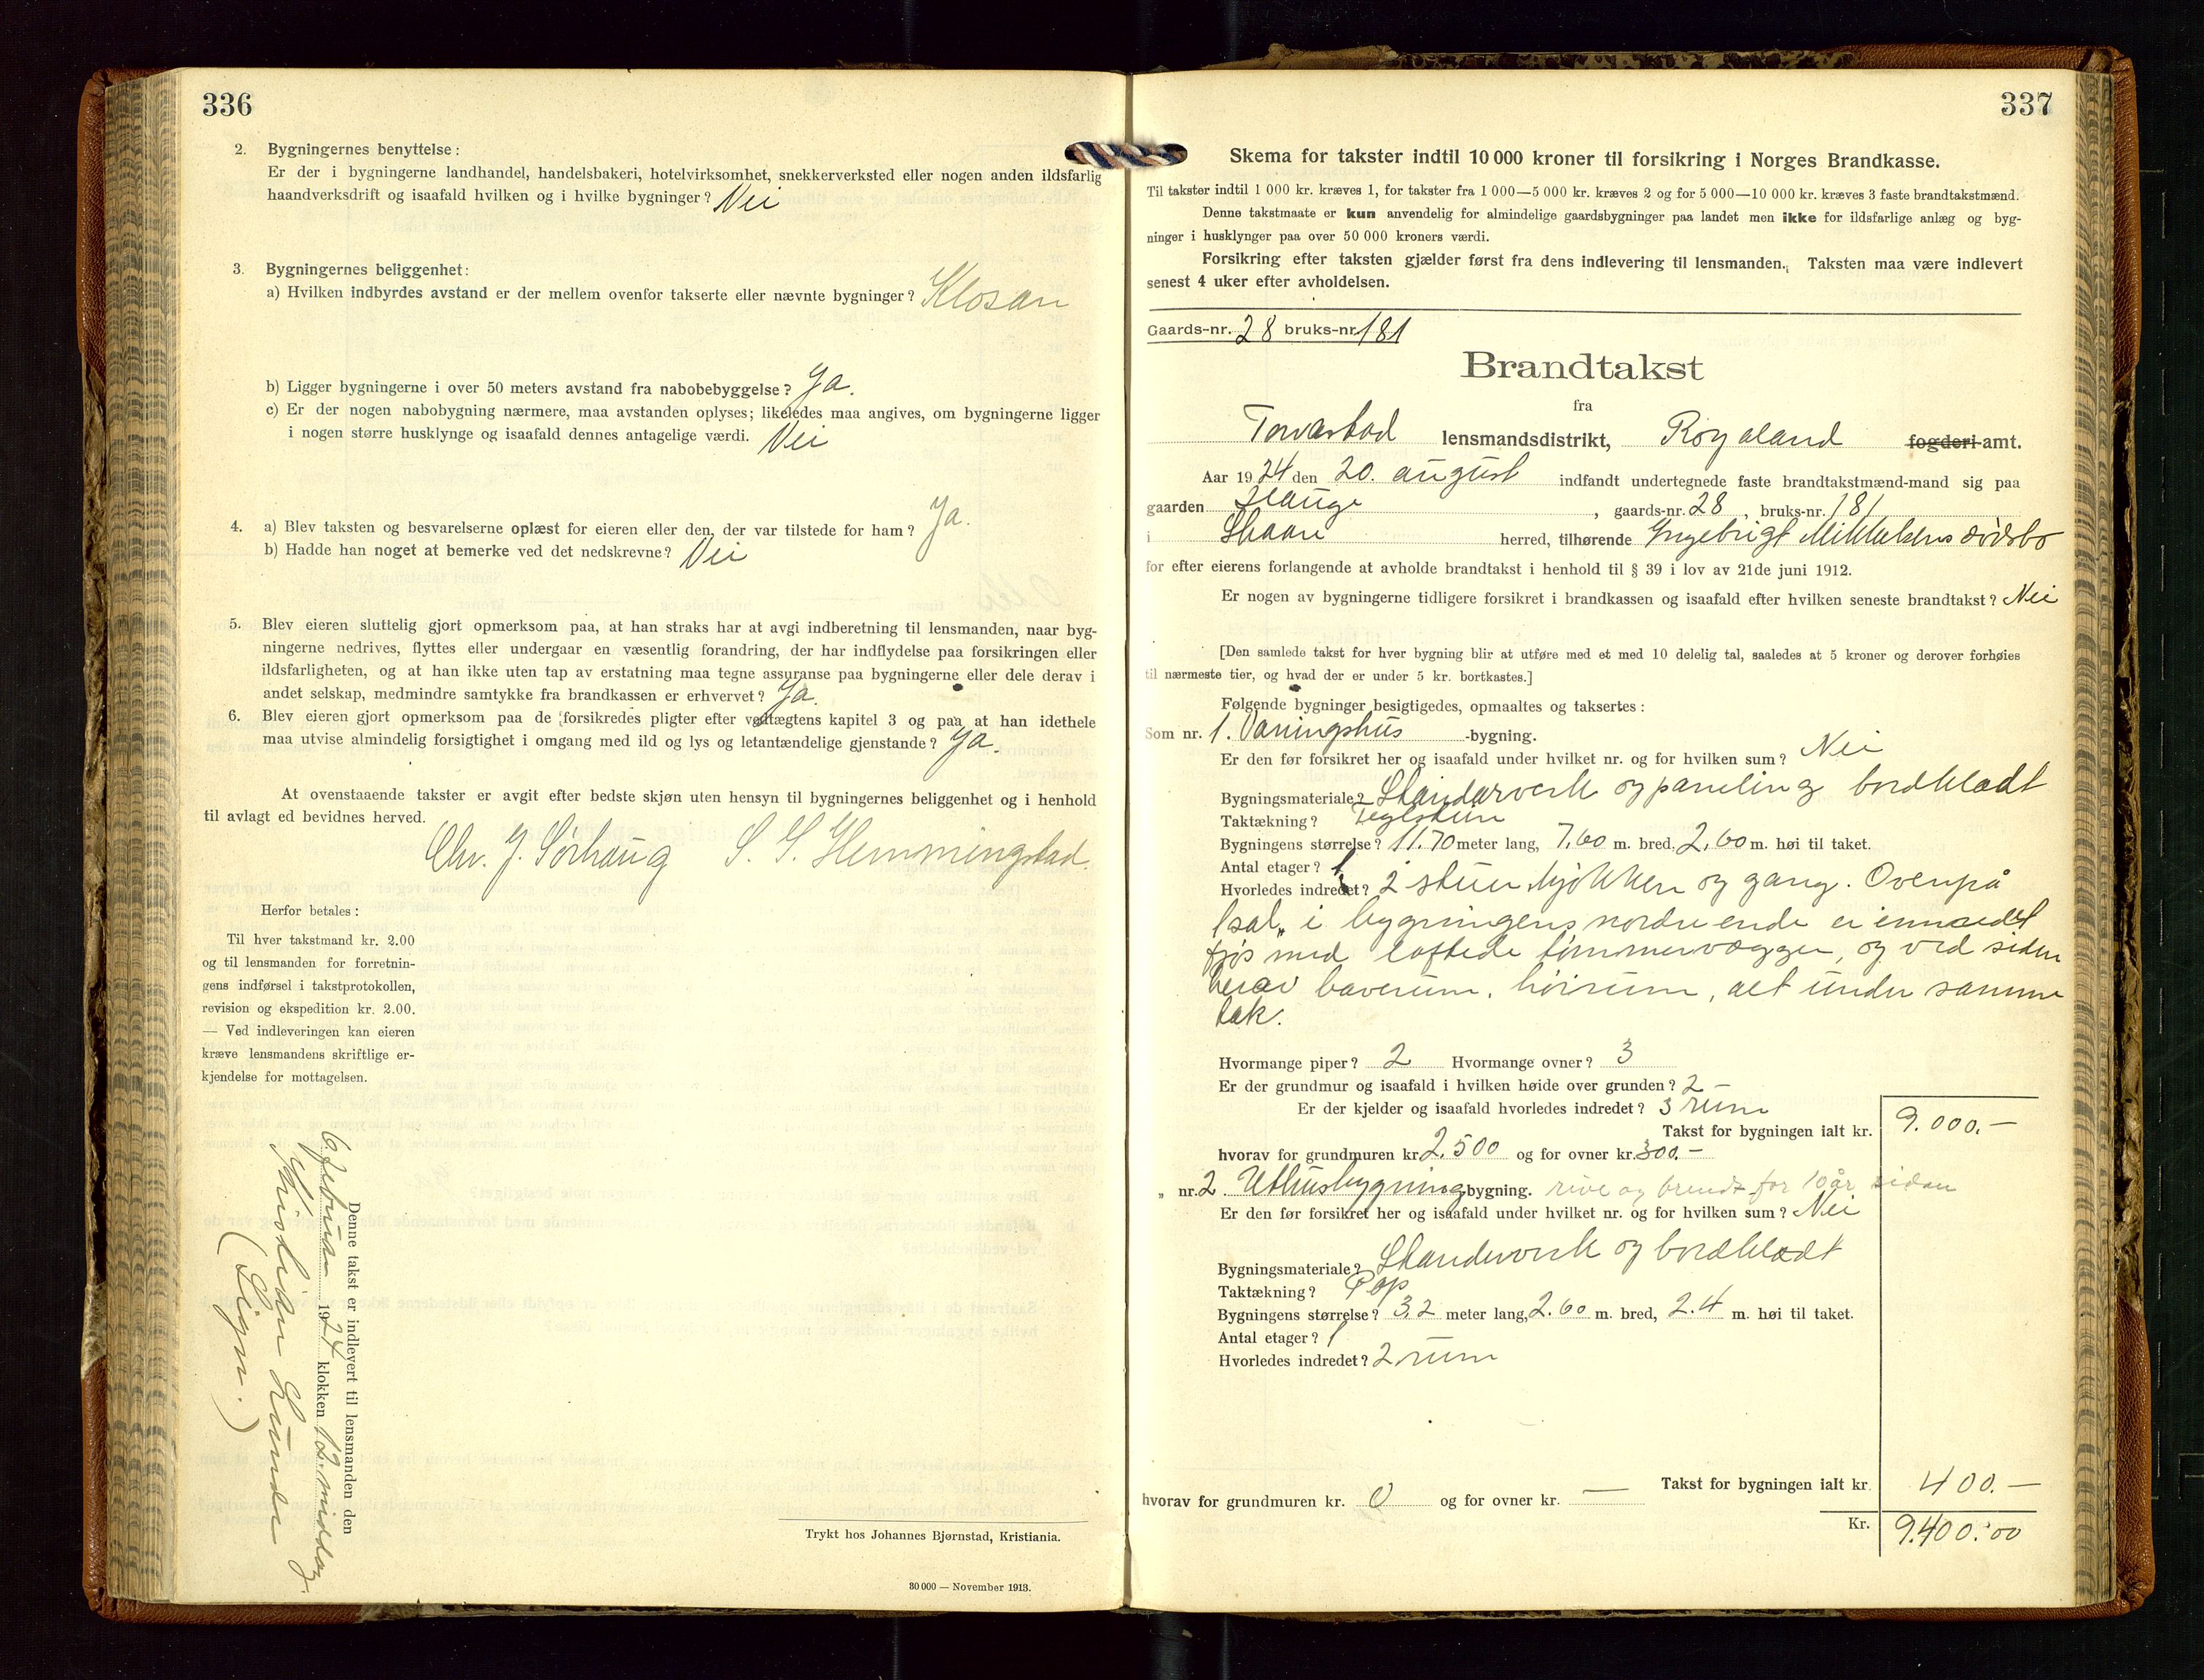 336
2. Bygningernes benyttelse:
Er der i bygningerne landhandel, handelsbakeri, hotelvirksomhet, snekkerverksted eller nogen anden ildsfarlig
haandverksdrift og isaafald hvilken og i hvilke bygninger? Nei
3. Bygningernes beliggenhet:
a) Hvilken indbyrdes avstand er der mellem ovenfor takserte eller nævnte bygninger? Klosan
b) Ligger bygningerne i over 50 meters avstand fra nabobebyggelse? Ja.
c) Er der nogen nabobygning nærmere, maa avstanden oplyses; likeledes maa angives, om bygningerne ligger
i nogen større husklynge og isaafald dennes antagelige værdi. Nei
4. a) Blev taksten og besvarelserne oplæst for eieren eller den, der var tilstede for ham? Ja.
b) Hadde han noget at bemerke ved det nedskrevne? Nei
5. Blev eieren sluttelig gjort opmerksom paa, at han straks har at avgi indberetning til lensmanden, naar byg-
ningerne nedrives, flyttes eller undergaar en væsentlig forandring, der har indflydelse paa forsikringen eller
ildsfarligheten, og at han ikke uten tap av erstatning maa tegne assuranse paa bygningerne eller dele derav i
andet selskap, medmindre samtykke fra brandkassen er erhvervet? Ja.
6. Blev eieren gjort opmerksom paa de forsikredes pligter efter vedtægtens kapitel 3 og paa at han idethele
maa utvise almindelig forsigtighet i omgang med ild og lys og letantændelige gjenstande? Ja.
At ovenstaaende takster er avgit efter bedste skjøn uten hensyn til bygningernes beliggenhet og i henhold
til avlagt ed bevidnes herved.
Chr. J. Sørhaug S. S. Hemmingstad.
Herfor betales:
Til hver takstmand kr. 2.00
og til lensmanden for forretnin-
gens indførsel i takstprotokollen,
revision og ekspedition kr. 2.00.
— Ved indleveringen kan eieren
kræve lensmandens skriftlige er-
kjendelse for mottagelsen.
Denne takst er indlevert til lensmanden den
6 februar 1924 klokken 12 middag.
Kristian Lunden
(Sign.)
Trykt hos Johannes Bjørnstad, Kristiania.
30 000 — November 1913.
337
Skema for takster indtil 10 000 kroner til forsikring i Norges Brandkasse.
Til takster indtil 1 000 kr. kræves 1, for takster fra 1 000—5 000 kr. kræves 2 og for 5 000—10 000 kr. kræves 3 faste brandtakstmænd.
Denne takstmaate er kun anvendelig for almindelige gaardsbygninger paa landet men ikke for ildsfarlige anlæg og byg-
ninger i husklynger paa over 50 000 kroners værdi.
Forsikring efter taksten gjælder først fra dens indlevering til lensmanden. Taksten maa være indlevert
senest 4 uker efter avholdelsen.
Gaards-nr. 28 bruks-nr. 181
Brandtakst
fra
Torvestad lensmandsdistrikt, Rogaland fogderi amt.
Aar 1924 den 20. august indfandt undertegnede faste brandtakstmænd-mand sig paa
gaarden Hauge, gaards-nr. 28, bruks-nr. 181
i Skaare herred, tilhørende Ingebrigt Mikkelsens dødsbo
for efter eierens forlangende at avholde brandtakst i henhold til § 39 i lov av 21de juni 1912.
Er nogen av bygningerne tidligere forsikret i brandkassen og isaafald efter hvilken seneste brandtakst? Nei
[Den samlede takst for hver bygning blir at utføre med et med 10 delelig tal, saaledes at 5 kroner og derover forhøies
til nærmeste tier, og hvad der er under 5 kr. bortkastes.]
Følgende bygninger besigtigedes, opmaaltes og taksertes:
Som nr. 1. Vaaningshus -bygning.
Er den før forsikret her og isaafald under hvilket nr. og for hvilken sum? Nei
Bygningsmateriale? Standarverk og paneling bordklædt
Taktækning? Teglsten
Bygningens størrelse? 11.70 meter lang, 7.60 m. bred, 2.60 m. høi til taket.
Antal etager? 1
Hvorledes indredet? 2 stuer kjøkken og gang. Ovenpå
1 sal, i bygningens nordre ende er innredet
fjøs med loftede tømmervægger, og ved siden
herav baverum, høirum, alt under samme
tak.
Hvormange piper? 2 Hvormange ovner? 3
Er der grundmur og isaafald i hvilken høide over grunden? 2 —
Er der kjelder og isaafald hvorledes indredet? 3 rum
Takst for bygningen ialt kr. 9.000.—
hvorav for grundmuren kr. 2.500 og for ovner kr. 300.—
„ nr. 2 Uthusbygning bygning. rive og brendt for 10 år sidan
Er den før forsikret her og isaafald under hvilket nr. og for hvilken sum? Nei
Bygningsmateriale? Standerverk og bordklædt
Taktækning? Pap
Bygningens størrelse? 3.2 meter lang, 2.60 m. bred, 2.4 m. høi til taket.
Antal etager? 1
Hvorledes indredet? 2 rum
Takst for bygningen ialt kr. 400.—
hvorav for grundmuren kr. 0 og for ovner kr. —
Kr. 9.400.00